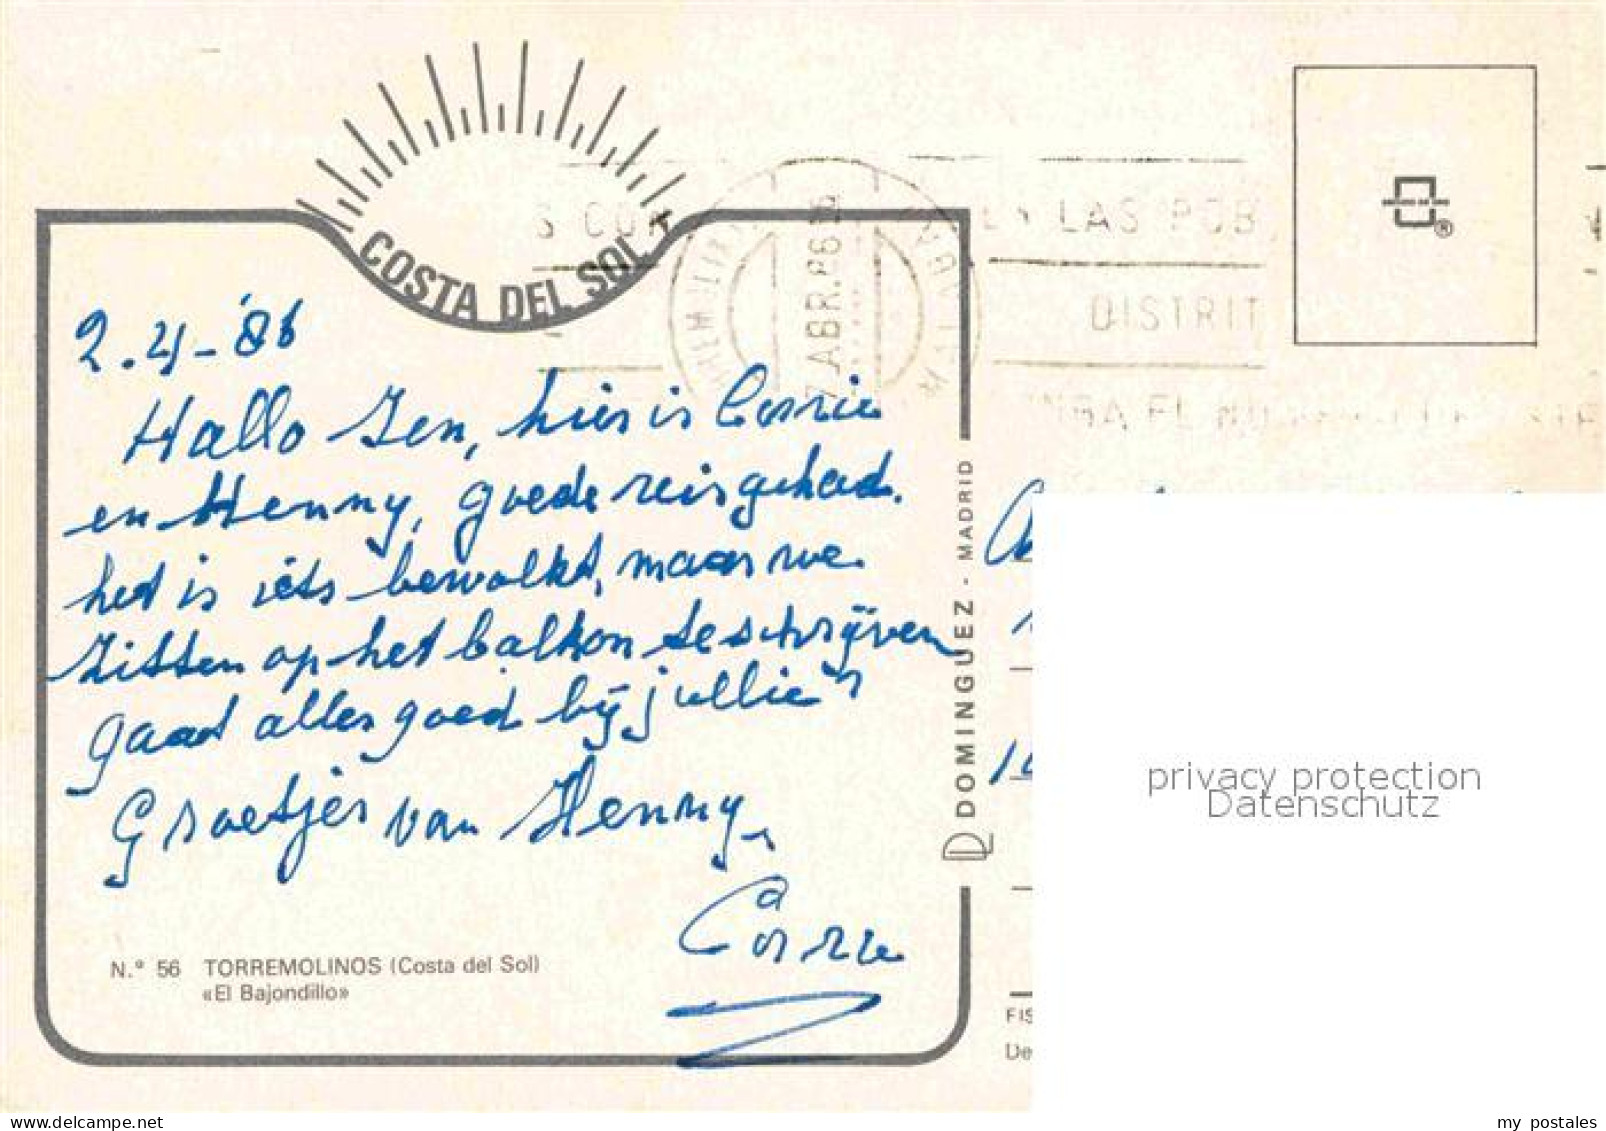 COSTA DEL SOL
S CO
LAS POB
7 ABR. 86
DISTRIT
®
2.4-'86
Hallo Jen, hier is Corrie
en Henny, goede reis gehad.
het is iets bewolkt, maar we
zitten op het balkon te schrijven
gaat alles goed bij jullie?
Groetjes van Henny
Corrie
DOMINGUEZ - MADRID
N.° 56 TORREMOLINOS (Costa del Sol)
«El Bajondillo»
FIS
De
privacy protection
Datenschutz
www.delcampe.net
my_postales